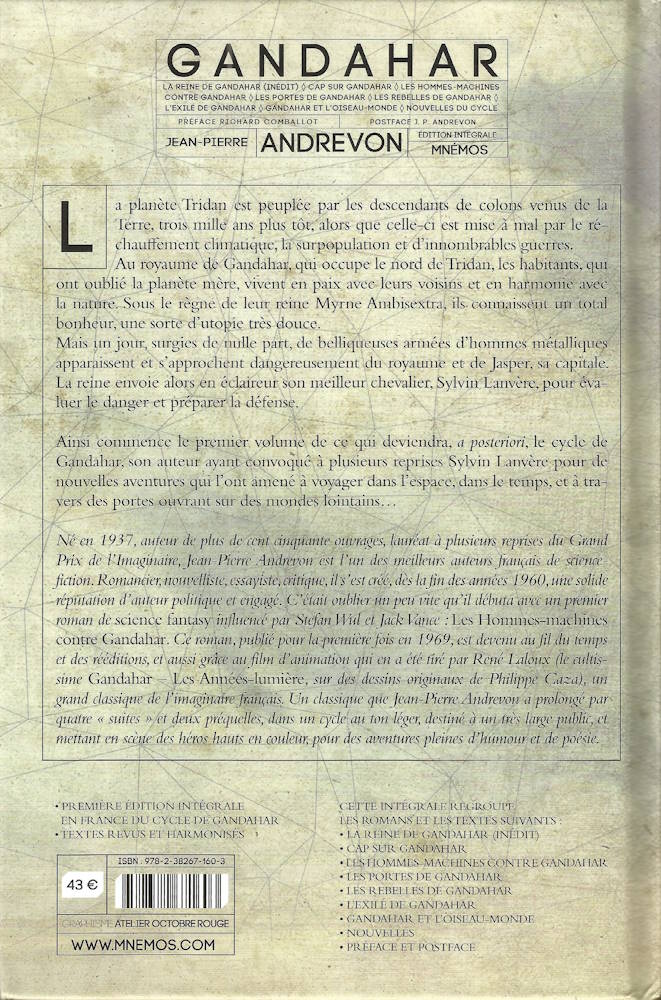 GANDAHAR
LA REINE DE GANDAHAR (INÉDIT) ◊ CAP SUR GANDAHAR ◊ LES HOMMES-MACHINES
CONTRE GANDAHAR ◊ LES PORTES DE GANDAHAR ◊ LES REBELLES DE GANDAHAR ◊
L'EXILÉ DE GANDAHAR ◊ GANDAHAR ET L'OISEAU-MONDE ◊ NOUVELLES DU CYCLE
PRÉFACE RICHARD COMBALLOT POSTFACE J. P. ANDREVON
JEAN-PIERRE ANDREVON ÉDITION INTÉGRALE
MNÉMOS
La planète Tridan est peuplée par les descendants de colons venus de la
Terre, trois mille ans plus tôt, alors que celle-ci est mise à mal par le ré-
chauffement climatique, la surpopulation et d'innombrables guerres.
Au royaume de Gandahar, qui occupe le nord de Tridan, les habitants, qui
ont oublié la planète mère, vivent en paix avec leurs voisins et en harmonie avec
la nature. Sous le règne de leur reine Myrne Ambisextra, ils connaissent un total
bonheur, une sorte d'utopie très douce.
Mais un jour, surgies de nulle part, de belliqueuses armées d'hommes métalliques
apparaissent et s'approchent dangereusement du royaume et de Jasper, sa capitale.
La reine envoie alors en éclaireur son meilleur chevalier, Sylvin Lanvère, pour éva-
luer le danger et préparer la défense.
Ainsi commence le premier volume de ce qui deviendra, a posteriori, le cycle de
Gandahar, son auteur ayant convoqué à plusieurs reprises Sylvin Lanvère pour de
nouvelles aventures qui l'ont amené à voyager dans l'espace, dans le temps, et à tra-
vers des portes ouvrant sur des mondes lointains…
Né en 1937, auteur de plus de cent cinquante ouvrages, lauréat à plusieurs reprises du Grand
Prix de l'Imaginaire, Jean-Pierre Andrevon est l'un des meilleurs auteurs français de science-
fiction. Romancier, nouvelliste, essayiste, critique, il s'est créé, dès la fin des années 1960, une solide
réputation d'auteur politique et engagé. C'était oublier un peu vite qu'il débuta avec un premier
roman de science fantasy influencé par Stefan Wul et Jack Vance : Les Hommes-machines
contre Gandahar. Ce roman, publié pour la première fois en 1969, est devenu au fil du temps
et des rééditions, et aussi grâce au film d'animation qui en a été tiré par René Laloux (le cultis-
sime Gandahar – Les Années-lumière, sur des dessins originaux de Philippe Caza), un
grand classique de l'imaginaire français. Un classique que Jean-Pierre Andrevon a prolongé par
quatre « suites » et deux préquelles, dans un cycle au ton léger, destiné à un très large public, et
mettant en scène des héros hauts en couleur, pour des aventures pleines d'humour et de poésie.
• PREMIÈRE ÉDITION INTÉGRALE
EN FRANCE DU CYCLE DE GANDAHAR
• TEXTES REVUS ET HARMONISÉS
ISBN : 978-2-38267-160-3
43 €
GRAPHISME ATELIER OCTOBRE ROUGE
WWW.MNEMOS.COM
CETTE INTÉGRALE REGROUPE
LES ROMANS ET LES TEXTES SUIVANTS :
• LA REINE DE GANDAHAR (INÉDIT)
• CAP SUR GANDAHAR
• LES HOMMES-MACHINES CONTRE GANDAHAR
• LES PORTES DE GANDAHAR
• LES REBELLES DE GANDAHAR
• L'EXILÉ DE GANDAHAR
• GANDAHAR ET L'OISEAU-MONDE
• NOUVELLES
• PRÉFACE ET POSTFACE